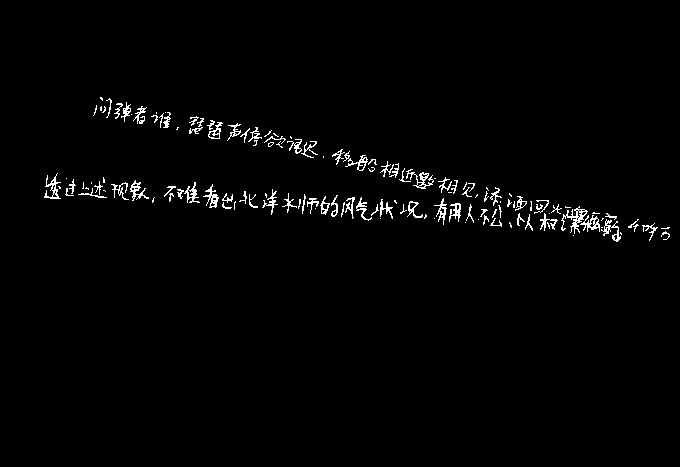 问弹者谁,琵琶声停欲语迟,移船相近邀相见,添酒回 千呼万
透过上述现象,不难看出北洋水师的风气状况,有用人不公、以权